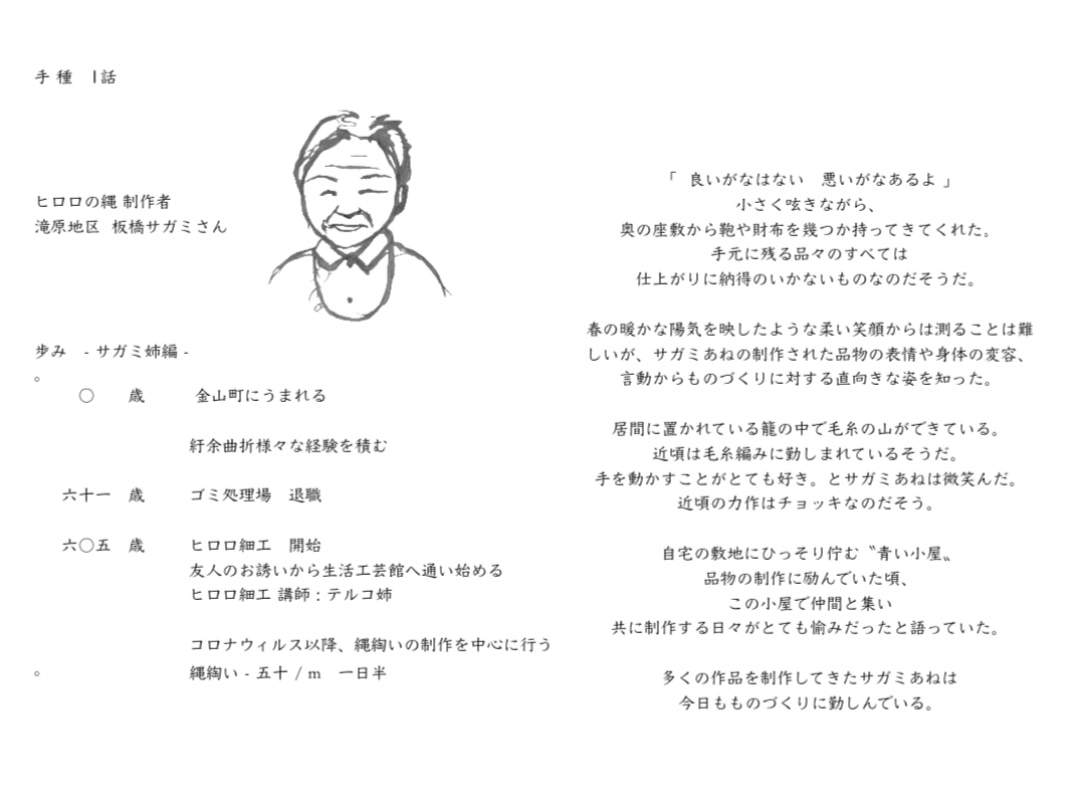 手種　1話
ヒロロの縄 制作者
滝原地区 板橋サガミさん
歩み　- サガミ姉編 -
。
〇　歳　金山町にうまれる
紆余曲折様々な経験を積む
六十一　歳　ゴミ処理場　退職
六〇五　歳　ヒロロ細工　開始
友人のお誘いから生活工芸館へ通い始める
ヒロロ細工 講師：テルコ姉
コロナウィルス以降、縄綯いの制作を中心に行う
。　縄綯い - 五十 / m　一日半
「　良いがなはない　悪いがなあるよ 」
小さく呟きながら、
奥の座敷から鞄や財布を幾つか持ってきてくれた。
手元に残る品々のすべては
仕上がりに納得のいかないものなのだそうだ。
春の暖かな陽気を映したような柔い笑顔からは測ることは難
しいが、サガミあねの制作された品物の表情や身体の変容、
言動からものづくりに対する直向きな姿を知った。
居間に置かれている籠の中で毛糸の山ができている。
近頃は毛糸編みに勤しまれているそうだ。
手を動かすことがとても好き。とサガミあねは微笑んだ。
近頃の力作はチョッキなのだそう。
自宅の敷地にひっそり佇む〝青い小屋〟
品物の制作に励んでいた頃、
この小屋で仲間と集い
共に制作する日々がとても愉みだったと語っていた。
多くの作品を制作してきたサガミあねは
今日もものづくりに勤しんでいる。